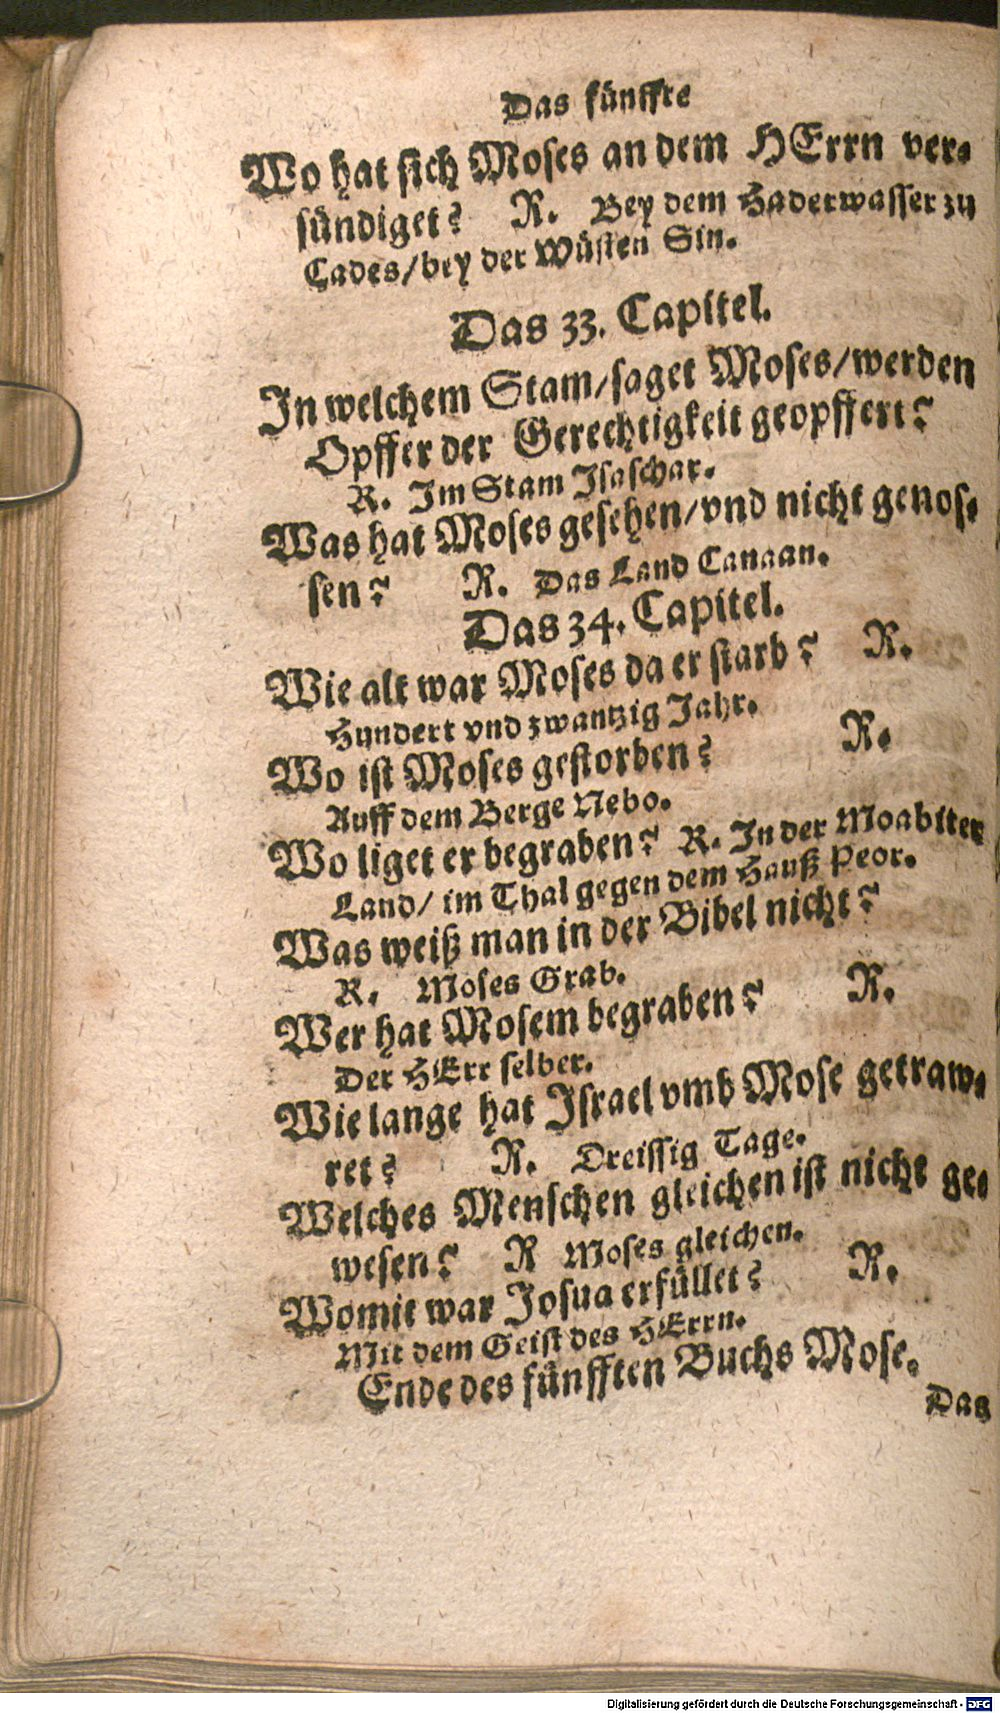 Das fünffte
Wo hat sich Moses an dem HErrn ver-
sündiget? R. Bey dem Haderwasser zu
Cades/bey der Wüsten Sin.
Das 33. Capitel.
In welchem Stam/saget Moses/werden
Opffer der Gerechtigkeit geopffert?
R. Im Stam Isaschar.
Was hat Moses gesehen/vnd nicht genos-
sen? R. Das Land Canaan.
Das 34. Capitel.
Wie alt war Moses da er starb? R.
Hundert vnd zwantzig Jahr.
Wo ist Moses gestorben? R.
Auff dem Berge Nebo.
Wo liget er begraben? R. In der Moabiter
Land/ im Thal gegen dem Hauß Peor.
Was weiß man in der Bibel nicht?
R. Moses Grab.
Wer hat Mosem begraben? R.
Der HErr selber.
Wie lange hat Israel vmb Mose getraw-
ret? R. Dreissig Tage.
Welches Menschen gleichen ist nicht ge-
wesen? R Moses gleichen.
Womit war Josua erfüllet? R.
Mit dem Geist des HErrn.
Ende des fünfften Buchs Mose.
Das
Digitalisierung gefördert durch die Deutsche Forschungsgemeinschaft - DFG